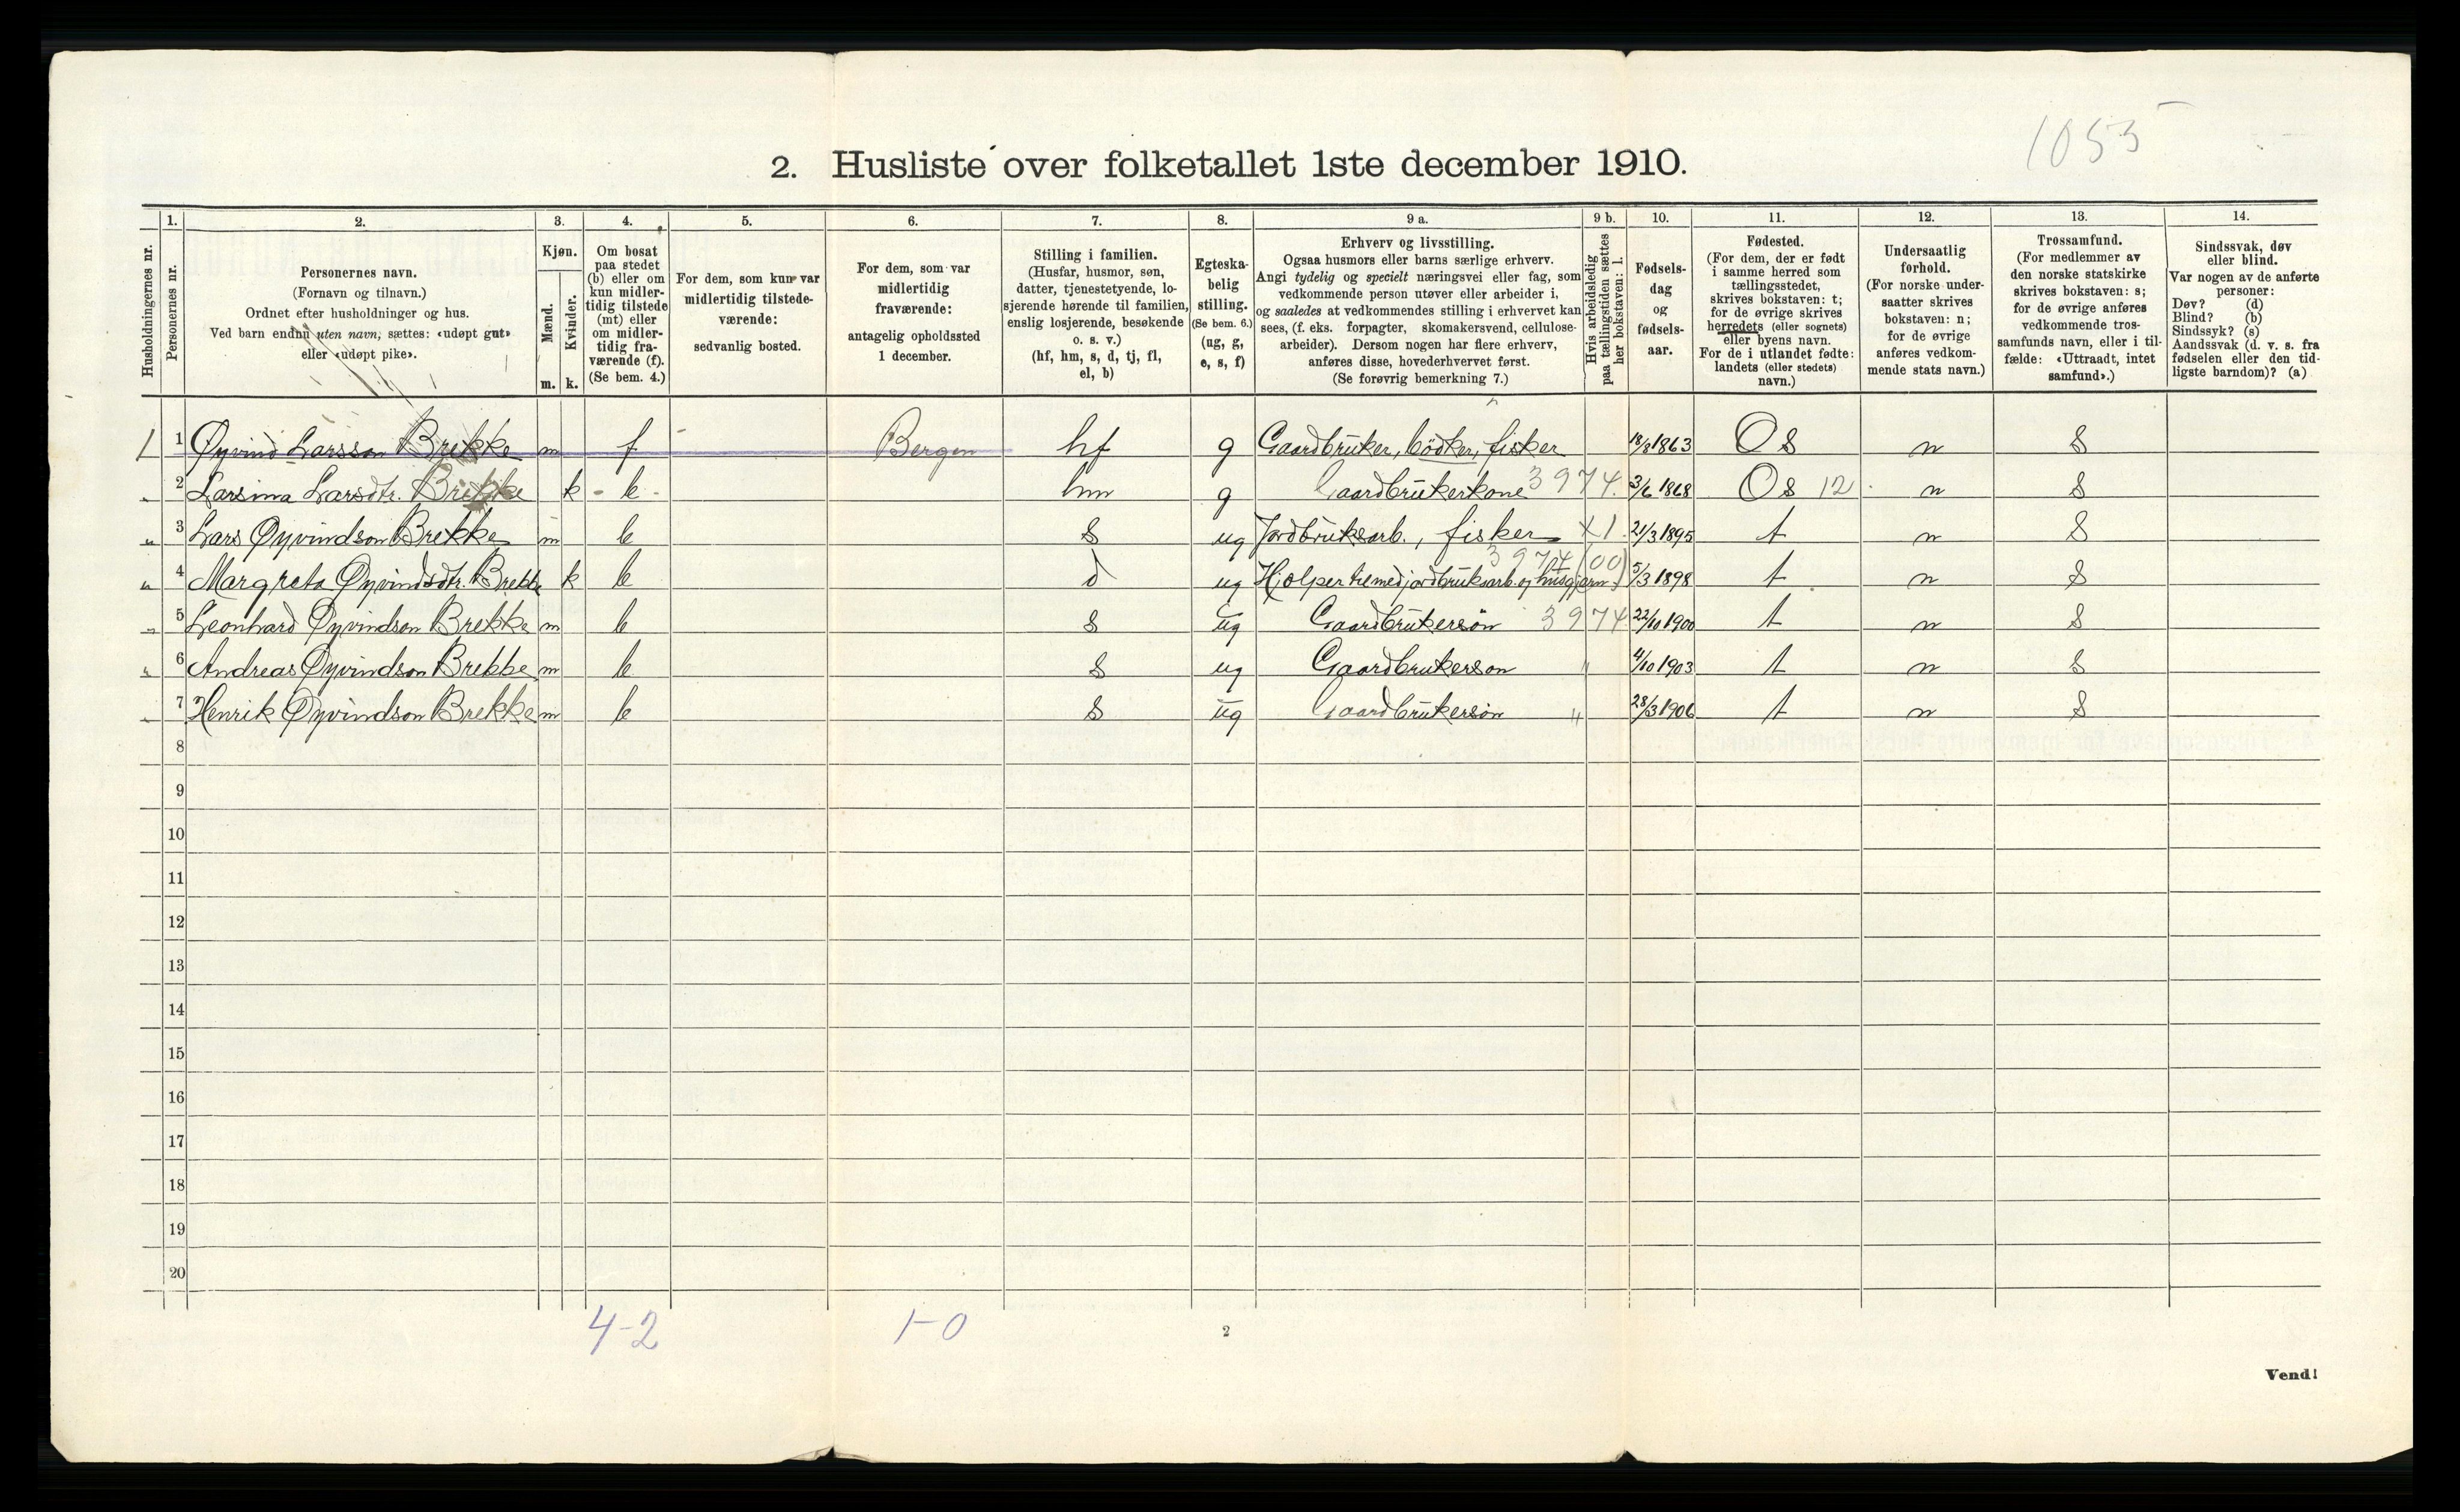 1055
2. Husliste over folketallet 1ste december 1910.
Husholdningernes nr.
1.
Personernes nr.
2.
Personernes navn.
(Fornavn og tilnavn.)
Ordnet efter husholdninger og hus.
Ved barn endnu uten navn, sættes: «udøpt gut»
eller «udøpt pike».
3.
Kjøn.
Mænd.
Kvinder.
m. k.
4.
Om bosat
paa stedet
(b) eller om
kun midler-
tidig tilstede
(mt) eller
om midler-
tidig fra-
værende (f).
(Se bem. 4.)
5.
For dem, som kun var
midlertidig tilstede-
værende:
sedvanlig bosted.
6.
For dem, som var
midlertidig
fraværende:
antagelig opholdssted
1 december.
7.
Stilling i familien.
(Husfar, husmor, søn,
datter, tjenestetyende, lo-
sjerende hørende til familien,
enslig losjerende, besøkende
o. s. v.)
(hf, hm, s, d, tj, fl,
el, b)
8.
Egteska-
belig
stilling.
(Se bem. 6.)
(ug, g,
e, s, f)
9 a.
Erhverv og livsstilling.
Ogsaa husmors eller barns særlige erhverv.
Angi tydelig og specielt næringsvei eller fag, som
vedkommende person utøver eller arbeider i,
og saaledes at vedkommendes stilling i erhvervet kan
sees, (f. eks. forpagter, skomakersvend, cellulose-
arbeider). Dersom nogen har flere erhverv,
anføres disse, hovederhvervet først.
(Se forøvrig bemerkning 7.)
9 b.
Hvis arbeidsledig
paa tællingstiden sættes
her bokstaven: l.
10.
Fødsels-
dag
og
fødsels-
aar.
11.
Fødested.
(For dem, der er født
i samme herred som
tællingsstedet,
skrives bokstaven: t;
for de øvrige skrives
herredets (eller sognets)
eller byens navn.
For de i utlandet fødte:
landets (eller stedets)
navn.)
12.
Undersaatlig
forhold.
(For norske under-
saatter skrives
bokstaven: n;
for de øvrige
anføres vedkom-
mende stats navn.)
13.
Trossamfund.
(For medlemmer av
den norske statskirke
skrives bokstaven: s;
for de øvrige anføres
vedkommende tros-
samfunds navn, eller i til-
fælde: «Uttraadt, intet
samfund».)
14.
Sindssvak, døv
eller blind.
Var nogen av de anførte
personer:
Døv? (d)
Blind? (b)
Sindssyk? (s)
Aandssvak (d. v. s. fra
fødselen eller den tid-
ligste barndom)? (a)
1 1 Øyvind Larsson Brekke m f Bergen hf g Gaardbruker, bödker, fisker 18/8 1863 Os n S
" 2 Larsina Larsdtr. Brekke k b hm g Gaardbrukerkone 3974. 3/6 1868 Os 12 n S
" 3 Lars Øyvindson Brekke m b S ug Jordbruksarb., fisker X1. 21/3 1895 t n S
3974 (00)
" 4 Margreta Øyvindsdtr. Brekke k b d ug Hjælper til med jordbruksarb. og husgjern. 5/3 1898 t n S
" 5 Leonhard Øyvindson Brekke m b S ug Gaardbrukersön 3974 22/10 1900 t n S
" 6 Andreas Øyvindson Brekke m b S ug Gaardbrukerson " 4/10 1903 t n S
" 7 Henrik Øyvindson Brekke m b S ug Gaardbrukersön " 28/3 1906 t n S
8
9
10
11
12
13
14
15
16
17
18
19
20
4-2 1-0
2
Vend!